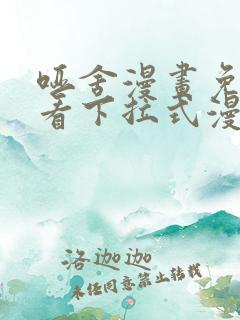 哑舍漫畫免
看下拉式漫
洛迦迦
未经同意禁止转载